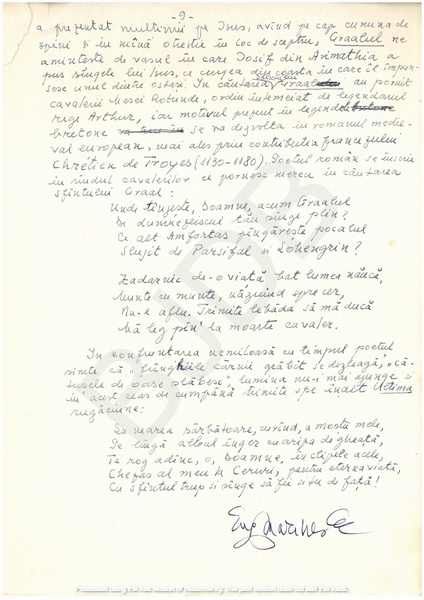 - 9 -
a prezentat mulțimii pe Isus, avînd pe cap cununa de
spini și în mînă o trestie în loc de sceptru, Graalul ne
amintește de vasul în care Iosif din Arimathia a
pus sîngele lui Isus, ce curgea din coasta în care îl împun-
sese unul dintre ostași. În căutarea Graalului au pornit
cavalerii Mesei Rotunde, ordin înhemeiat de legendarul
rege Arthur, iar motivul prezent în legendele
bretone se va dezvolta în romanul medie-
val european, mai ales prin contribuția francezului
Chrétien de Troyes (1130-1180). Poetul român se înscrie
în rîndul cavalerilor ce pornesc mereu în căutarea
sfîntului Graal:
Unde tînjește, Doamne, acum Graalul
De dumnezeiscul tău sînge plin?
Ce alt Amfortas pîngărește pocalul
Slujit de Parsifal și Lohengrin?
Zadarnic de-o viață bat lumea năucă,
Munte cu munte, năzuind spre cer,
Nu-l aflu. Trimite lebăda să mă ducă
Mă leg pîn' la moarte cavaler.
In confruntarea nemiloasă cu timpul poetul
simte că "frînghiile cărnii grăbit se dezleagă, "că-
tușele de oase slăbesc", lumina nu-i mai ajunge și
în acest ceas de cumpănă trimite spre înalt Ultima
rugăciune:
La marea sărbătoare, curînd, a morții mele,
Pe lîngă albul înger cu aripa de gheață,
Te rog adînc, o, Doamne, în clipele acele,
Chezaș al meu la Ceruri, pentru eterna viață,
Cu sfîntul trup și sînge să fii și tu de față!